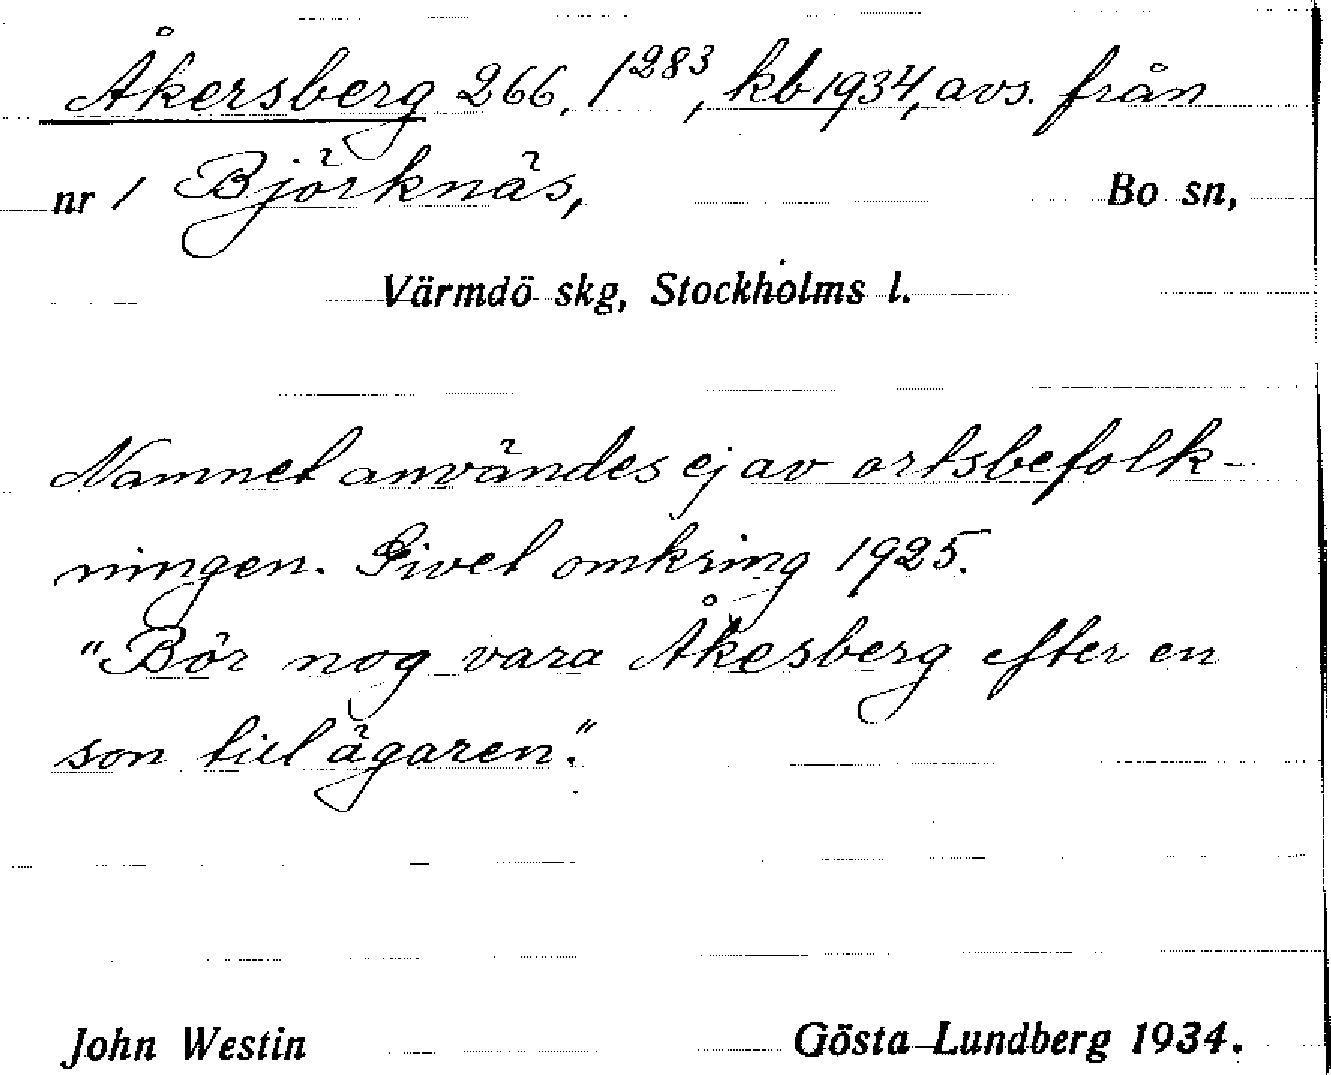 Åkersberg 266, 1²⁸³, kb 1934, avs. från
nr 1 Björknäs, Bo sn,
Värmdö skg, Stockholms l.
Namnet användes ej av ortsbefolk-
ningen. Givet omkring 1925.
"Bör nog vara Åkesberg efter en
son till ägaren."
John Westin Gösta Lundberg 1934.